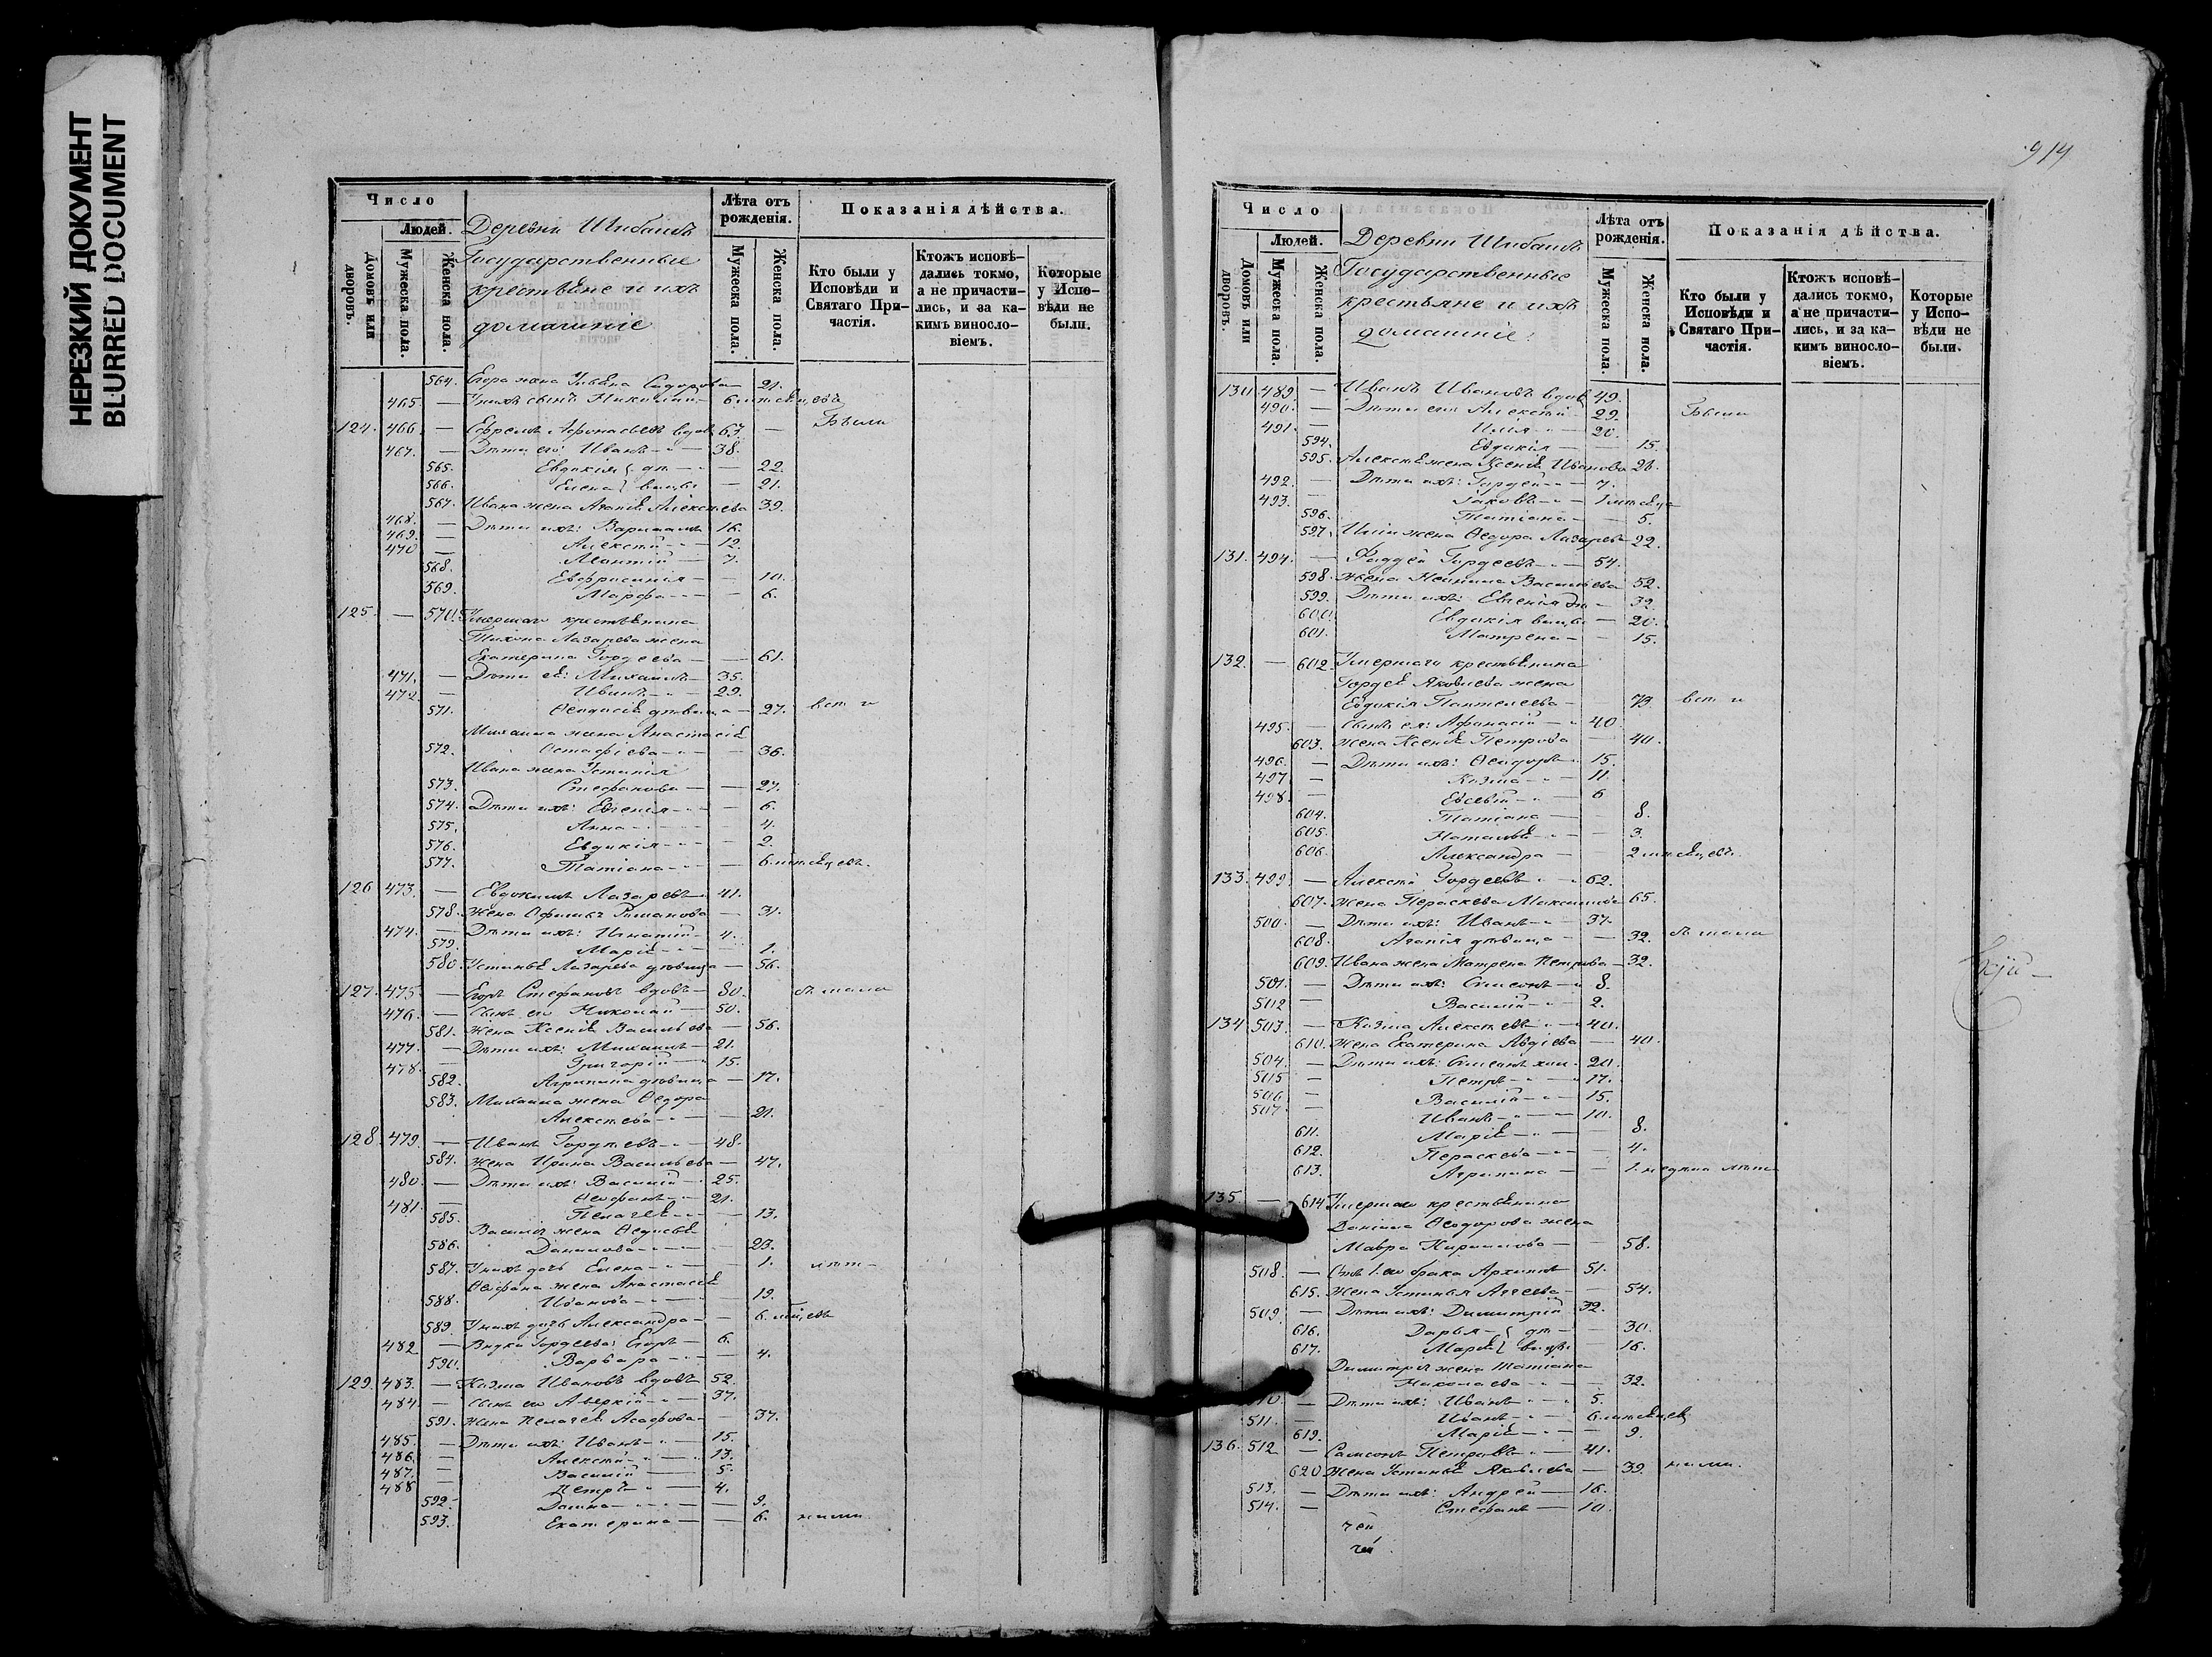 НЕРЕЗКИЙ ДОКУМЕНТ
BLURRED DOCUMENT
Число
Людей.
Домовъ или дворовъ.
Мужеска пола.
Женска пола.
Деревни Шибаевъ
Государственные
крестьяне и ихъ
домашніе
Лѣта отъ рожденія.
Мужеска пола.
Женска пола.
Показанія дѣйства.
Кто были у Исповѣди и Святаго При-частія.
Ктожъ исповѣ-дались токмо, а не причасти-лись, и за ка-кимъ винosло-віемъ.
Которые у Испо-вѣди не были.
564. Егора жена Ульяна Сидорова — 21.
465. — У нихъ сынъ Николай — 6 мѣсяцевъ
124. 466. — Ефремъ Афонасьевъ вдовъ 63. — Были
467. — Дѣти его: Иванъ — 38.
565. Евдокія } дѣ — 22.
566. Елена } вицы — 21.
567. Ивана жена Агапія Алексѣева 39.
468. — Дѣти ихъ: Варлаамъ 16.
469. — Алексѣй — 12.
470 — Леонтій — 7.
568. Евфросинія — 10.
569. Марфа — 6.
125. — 570. Умершаго крестьянина
Тихона Лазарева жена
Екатерина Гордеева — 61.
471. — Дѣти её: Михаилъ — 35.
472 — Иванъ — 29.
571. Ѳеодосія дѣвица — 27. вст и
Михаила жена Анастасія
572. Остафіева — 36.
Ивана жена Устинія
573. Стефанова — 27.
574. Дѣти ихъ: Евгенія — 6.
575. Анна — 4.
576. Евдокія — 2.
577. Татіана — 6 мѣсяцевъ.
126 473. — Евдокимъ Лазаревъ — 41.
578. Жена Романова — 31.
474. — Дѣти ихъ: Игнатій — 4.
579. Марія — 1.
580. Устинья Лазарева дѣвица — 56.
127. 475. — Егоръ Стефановъ вдовъ — 80.
476. — Сынъ его Николай — 50.
581. Жена Ксенія Васильева — 56.
477. — Дѣти ихъ: Михаилъ — 21.
478. Григорій — 15.
582. Агрипина дѣвица — 17.
583. Михаила жена Ѳедора
Алексѣева — 21.
128. 479. — Иванъ Гордѣевъ — 48.
584. Жена Ирина Васильева — 47.
480. — Дѣти ихъ: Василій — 25.
481. — Ѳеофанъ — 21.
585. Пелагея — 13.
Василія жена Ѳедосья
586. Данилова — 23.
587. У нихъ дочь Елена — 1.
Ѳеофана жена Анастасія
588. Иванова — 19.
589. У нихъ дочь Александра — 6. мѣсяцевъ
482 — Внуки Гордеева: Егоръ — 6.
590. Варвара — 4.
129. 483. — Козма Ивановъ вдовъ 52.
484. — Сынъ его Аверкій — 37.
591. Жена Пелагея Асафова — 37.
485. — Дѣти ихъ: Иванъ — 15.
486. — Алексѣй — 13.
487. — Василій — 5.
488 Петръ — 4.
592. Домна — 9.
593. Екатерина — 6.
914
Число
Людей.
Домовъ или дворовъ.
Мужеска пола.
Женска пола.
Деревни Шибаевъ
Государственные
крестьяне и ихъ
домашніе.
Лѣта отъ рожденія.
Мужеска пола.
Женска пола.
Показанія дѣйства.
Кто были у Исповѣди и Святаго При-частія.
Ктожъ исповѣ-дались токмо, а не причасти-лись, и за ка-кимъ виносло-віемъ.
Которые у Испо-вѣди не были.
130 489. — Иванъ Ивановъ вдовъ 49.
490. — Дѣти его Алексѣй 29. Были
491. — Илія — 20.
594. Евдокія — 15.
595. Алексѣя жена Ксенія Иванова 26.
492. — Дѣти ихъ: Гордей — 7.
493. — Іаковъ — 1 мѣсяца
596. Татіана — 5.
597. Иліи жена Ѳедора Лазарева 22.
131. 494. — Фаддей Гордеевъ — 54.
598. Жена Неонила Васильева 52.
599. Дѣти ихъ: Евгенія дѣ — 32.
600. Евдокія вицы — 20.
601. Матрена — 15.
132. — 602. Умершаго крестьянина
Гордея Яковлева жена
Евдокія Пантелеева — 73. вст и
495. — Сынъ ея: Афонасій — 40
603. Жена Ксенія Петрова — 40.
496. — Дѣти ихъ: Ѳеодоръ 15.
497 — Козма — 11.
498. — Евсевій — 6
604. Татіана — 8.
605. Наталья — 3.
606. Александра — 2 мѣсяцевъ.
133. 499. — Алексѣй Гордеевъ — 62.
607. Жена Пераскева Максимова 65.
500. — Дѣти ихъ: Иванъ — 37.
608. Агапія дѣвица — 32.
609. Ивана жена Матрена Петрова — 32.
501. — Дѣти ихъ: Симеонъ — 8.
502 — Василій — 2.
134 503. — Козма Алексѣевъ — 40.
610. Жена Екатерина Авдіева — 40.
504. — Дѣти ихъ: Симеонъ 20.
505 — Петръ — 17.
506. — Василій — 15.
507. — Иванъ — 10.
611. Марія — 8.
612. Пераскева — 4.
613. Агрипина — 1.
135. — 614 Умершаго крестьянина
Даніила Ѳеодорова жена
Мавра Кирилова — 58.
508. — Сынъ 1-го брака Архипъ 51.
615. Жена Устинья Аггеева — 54.
509. — Дѣти ихъ: Димитрій 32.
616. Дарья } дѣ — 30.
617. Марія } вицы — 16.
Димитрія жена Татіана
Николаева — 32.
510 — Дѣти ихъ: Иванъ — 5.
511. — Иванъ — 6 мѣсяцевъ
619. Марія — 9.
136. 512 — Самсонъ Петровъ — 41.
620 Жена Устинья Яковлева — 39.
513. — Дѣти ихъ: Андрей — 16.
514. — Стефанъ — 10.